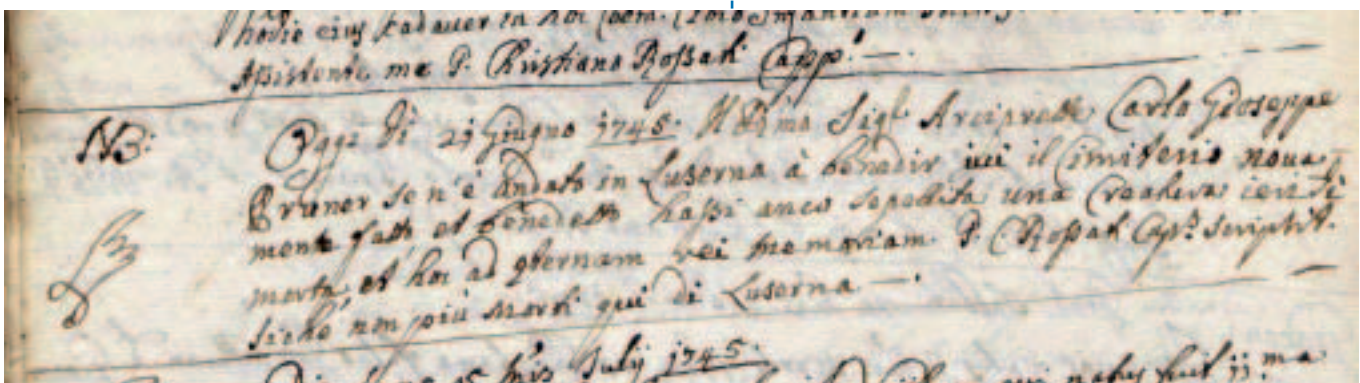 hodie eius Cadauer in hoc Coem.
Assistente me P. Christiano Rossati Capp.º —.
NB: Oggi di 21 Giugno 1745. Il Rmo Sigr Arciprette Carlo Gioseppe
Pruner se n'è andato in Luserna à benedir ivi il Cimiterio nova=
mente fatto et benedetto hassi anco sepolita una Creatura ieri dì
morta, et hoc ad æternam rei memoriam P. C. Rossati Capº. scripsit.
sichè non più morti qui di Luserna —.
15 July 1745.
qui natus fuit